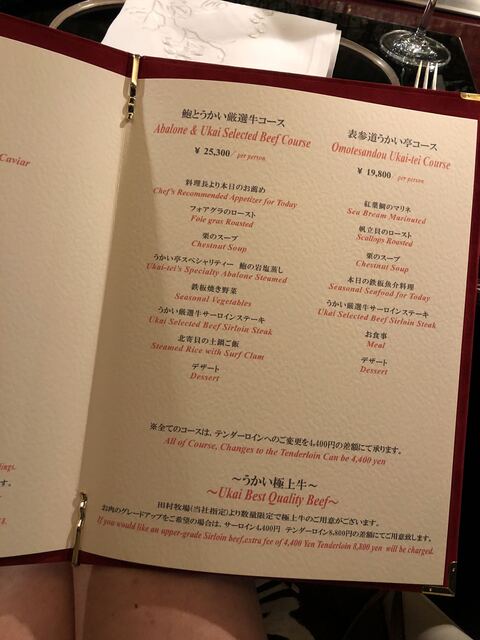 Caviar
鮑とうかい厳選牛コース
Abalone & Ukai Selected Beef Course
¥ 25,300/ per person
料理長より本日のお薦め
Chef's Recommended Appetizer for Today
フォアグラのロースト
Foie gras Roasted
栗のスープ
Chestnut Soup
うかい亭スペシャリティー 鮑の岩塩蒸し
Ukai-tei's Specialty Abalone Steamed
鉄板焼き野菜
Seasonal Vegetables
うかい厳選牛サーロインステーキ
Ukai Selected Beef Sirloin Steak
北寄貝の土鍋ご飯
Steamed Rice with Surf Clam
デザート
Dessert
表参道うかい亭コース
Omotesandou Ukai-tei Course
¥ 19,800/ per person
紅葉鯛のマリネ
Sea Bream Marinated
帆立貝のロースト
Scallops Roasted
栗のスープ
Chestnut Soup
本日の鉄板魚介料理
Seasonal Seafood for Today
うかい厳選牛サーロインステーキ
Ukai Selected Beef Sirloin Steak
お食事
Meal
デザート
Dessert
※全てのコースは、テンダーロインへのご変更を4,400円の差額にて承ります。
All of Course, Changes to the Tenderloin Can be 4,400 yen
～うかい極上牛～
～Ukai Best Quality Beef～
田村牧場(当社指定)より数量限定で極上牛のご用意がございます。
お肉のグレードアップをご希望の場合は、サーロイン4,400円 テンダーロイン8,800円の差額にてご用意致します。
If you would like an upper-grade Sirloin beef,extra fee of 4,400 Yen Tenderloin 8,800 yen will be charged.